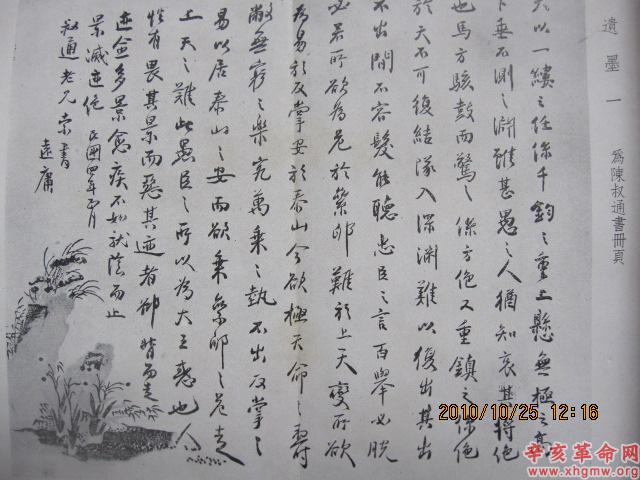 遺墨一 為陳叔通書冊頁
夫以一縷之任係千鈞之重上懸無極之高
下垂不測之淵雖甚愚之人猶知哀其將絕
也馬方駭鼓而驚之係方絕又重鎮之係絕
於天不可復結隊入深淵難以復出其出
不出間不容髮能聽忠臣之言百舉必脫
必若所欲為危於累卵難於上天變所欲
為易於反掌安於泰山今欲極天命之壽
敝無窮之樂究萬乘之埶不出反掌之
易以居泰山之安而欲乘累卵之危走
上天之難此愚臣之所以為大王惑也人
性有畏其景而惡其迹者卻背而走
迹愈多景愈疾不如就陰而止
景滅迹絕 民國四年月
叔通老兄索書
遠庸
2010/10/25 12:16
辛亥革命网
www.xhgmw.com